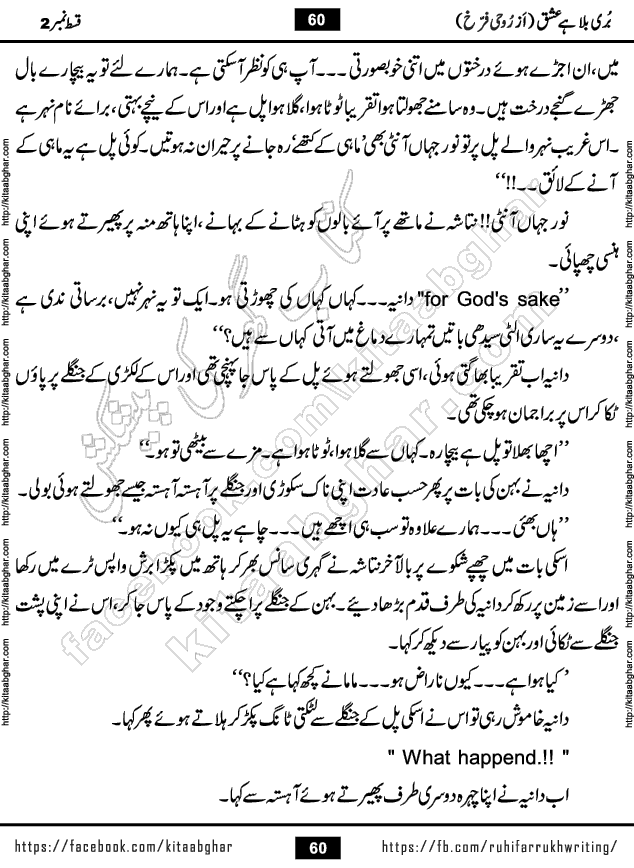 بُری بلا ہے عشق (از رُوحی فرّخ)
60
قسط نمبر 2
میں، ان اجڑے ہوئے درختوں میں اتنی خوبصورتی ۔۔۔ آپ ہی کو نظر آسکتی ہے۔ ہمارے لئے تو یہ بیچارے بال
جھڑے گنجے درخت ہیں۔ وہ سامنے جھولتا ہوا تقریبا ٹوٹا ہوا، گلا ہوا پل ہے اور اس کے نیچے بہتی، برائے نام نہر ہے
۔ اس غریب نہر والے پل پر تو نور جہاں آنٹی بھی ’ماہی کے کتھے‘ رہ جانے پر حیران نہ ہوتیں۔ کوئی پل ہے یہ ماہی کے
آنے کے لائق ۔۔!!‘‘
نور جہاں آنٹی!! نتاشہ نے ماتھے پر آئے بالوں کو ہٹانے کے بہانے، اپنا ہاتھ منہ پر پھیرتے ہوئے اپنی
ہنسی چھپائی۔
’’for God's sake" دانیہ ۔۔۔ کہاں کہاں کی چھوڑتی ہو۔ ایک تو یہ نہر نہیں، برساتی ندی ہے
، دوسرے یہ ساری الٹی سیدھی باتیں تمہارے دماغ میں آتی کہاں سے ہیں؟‘‘
دانیہ اب تقریبا بھاگتی ہوئی، اسی جھولتے ہوئے پل کے پاس جا پہنچی تھی اور اس کے لکڑی کے جنگلے پر پاؤں
ٹکا کر اس پر براجمان ہو چکی تھی۔
’’اچھا بھلا تو پل ہے بیچارہ۔ کہاں سے گلا ہوا، ٹوٹا ہوا ہے۔ مزے سے بیٹھی تو ہو۔‘‘
دانیہ نے بہن کی بات پر پھر حسب عادت اپنی ناک سکوڑی اور جنگلے پر آہستہ آہستہ جیسے جھولتے ہوئی بولی۔
’’ہاں بھئی ۔۔۔ ہمارے علاوہ تو سب ہی اچھے ہیں ۔۔۔ چاہے یہ پل ہی کیوں نہ ہو۔‘‘
اسکی بات میں چھپے شکوے پر بالآخر نتاشہ نے گہری سانس بھر کر ہاتھ میں پکڑا برش واپس ٹرے میں رکھا
اور اسے زمین پر رکھ کر دانیہ کی طرف قدم بڑھا دیئے۔ بہن کے جنگلے پر اچکتے وجود کے پاس جا کر، اس نے اپنی پشت
جنگلے سے ٹکائی اور بہن کو پیار سے دیکھ کر کہا۔
’کیا ہوا ہے ۔۔۔ کیوں ناراض ہو ۔۔۔ ماما نے کچھ کہا ہے کیا؟‘‘
دانیہ خاموش رہی تو اس نے اسکی پل کے جنگلے سے لٹکتی ٹانگ پکڑ کر ہلاتے ہوئے پھر کہا۔
" What happend.!! "
اب دانیہ نے اپنا چہرہ دوسری طرف پھیرتے ہوئے آہستہ سے کہا۔
http://kitaabghar.com
http://kitaabghar.com
http://kitaabghar.com
http://kitaabghar.com
http://kitaabghar.com
http://kitaabghar.com
http://kitaabghar.com
http://kitaabghar.com
http://kitaabghar.com
http://kitaabghar.com
http://kitaabghar.com
http://kitaabghar.com
کتاب گھر کی پیشکش
facebook.com/kitaabghar
kitaabghar.com
https://facebook.com/kitaabghar
60
https://fb.com/ruhifarrukhwriting/